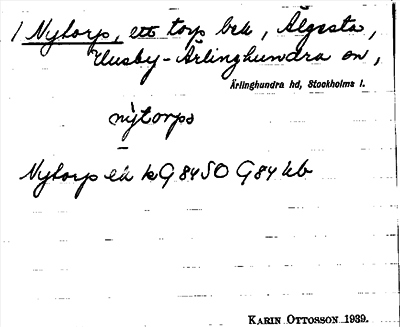 1 Nytorp, ett torp bek, Älgesta,
Husby-Ärlinghundra sn,
Ärlinghundra hd, Stockholms l.
nỳtorps
Nytorp ek kG84SO G84kb
KARIN OTTOSSON 1939.